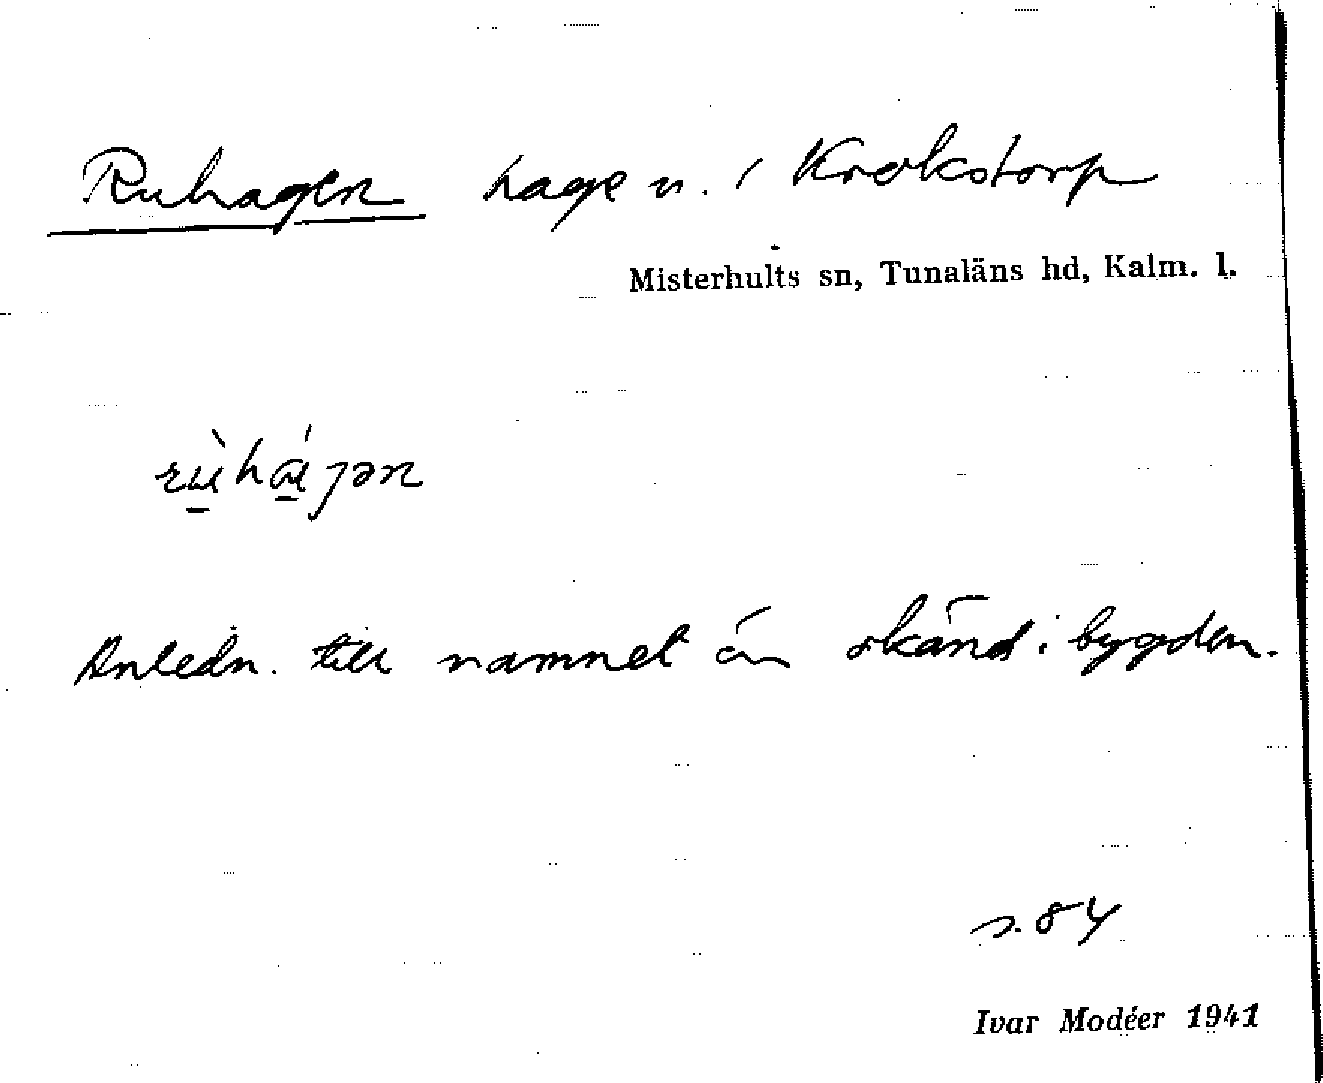 Ruhagen hage n. i Krokstorp
Misterhults sn, Tunaläns hd, Kalm. l.
Anledn. till namnet ön okänd i bygden.
s. 84
Ivar Modéer 1941